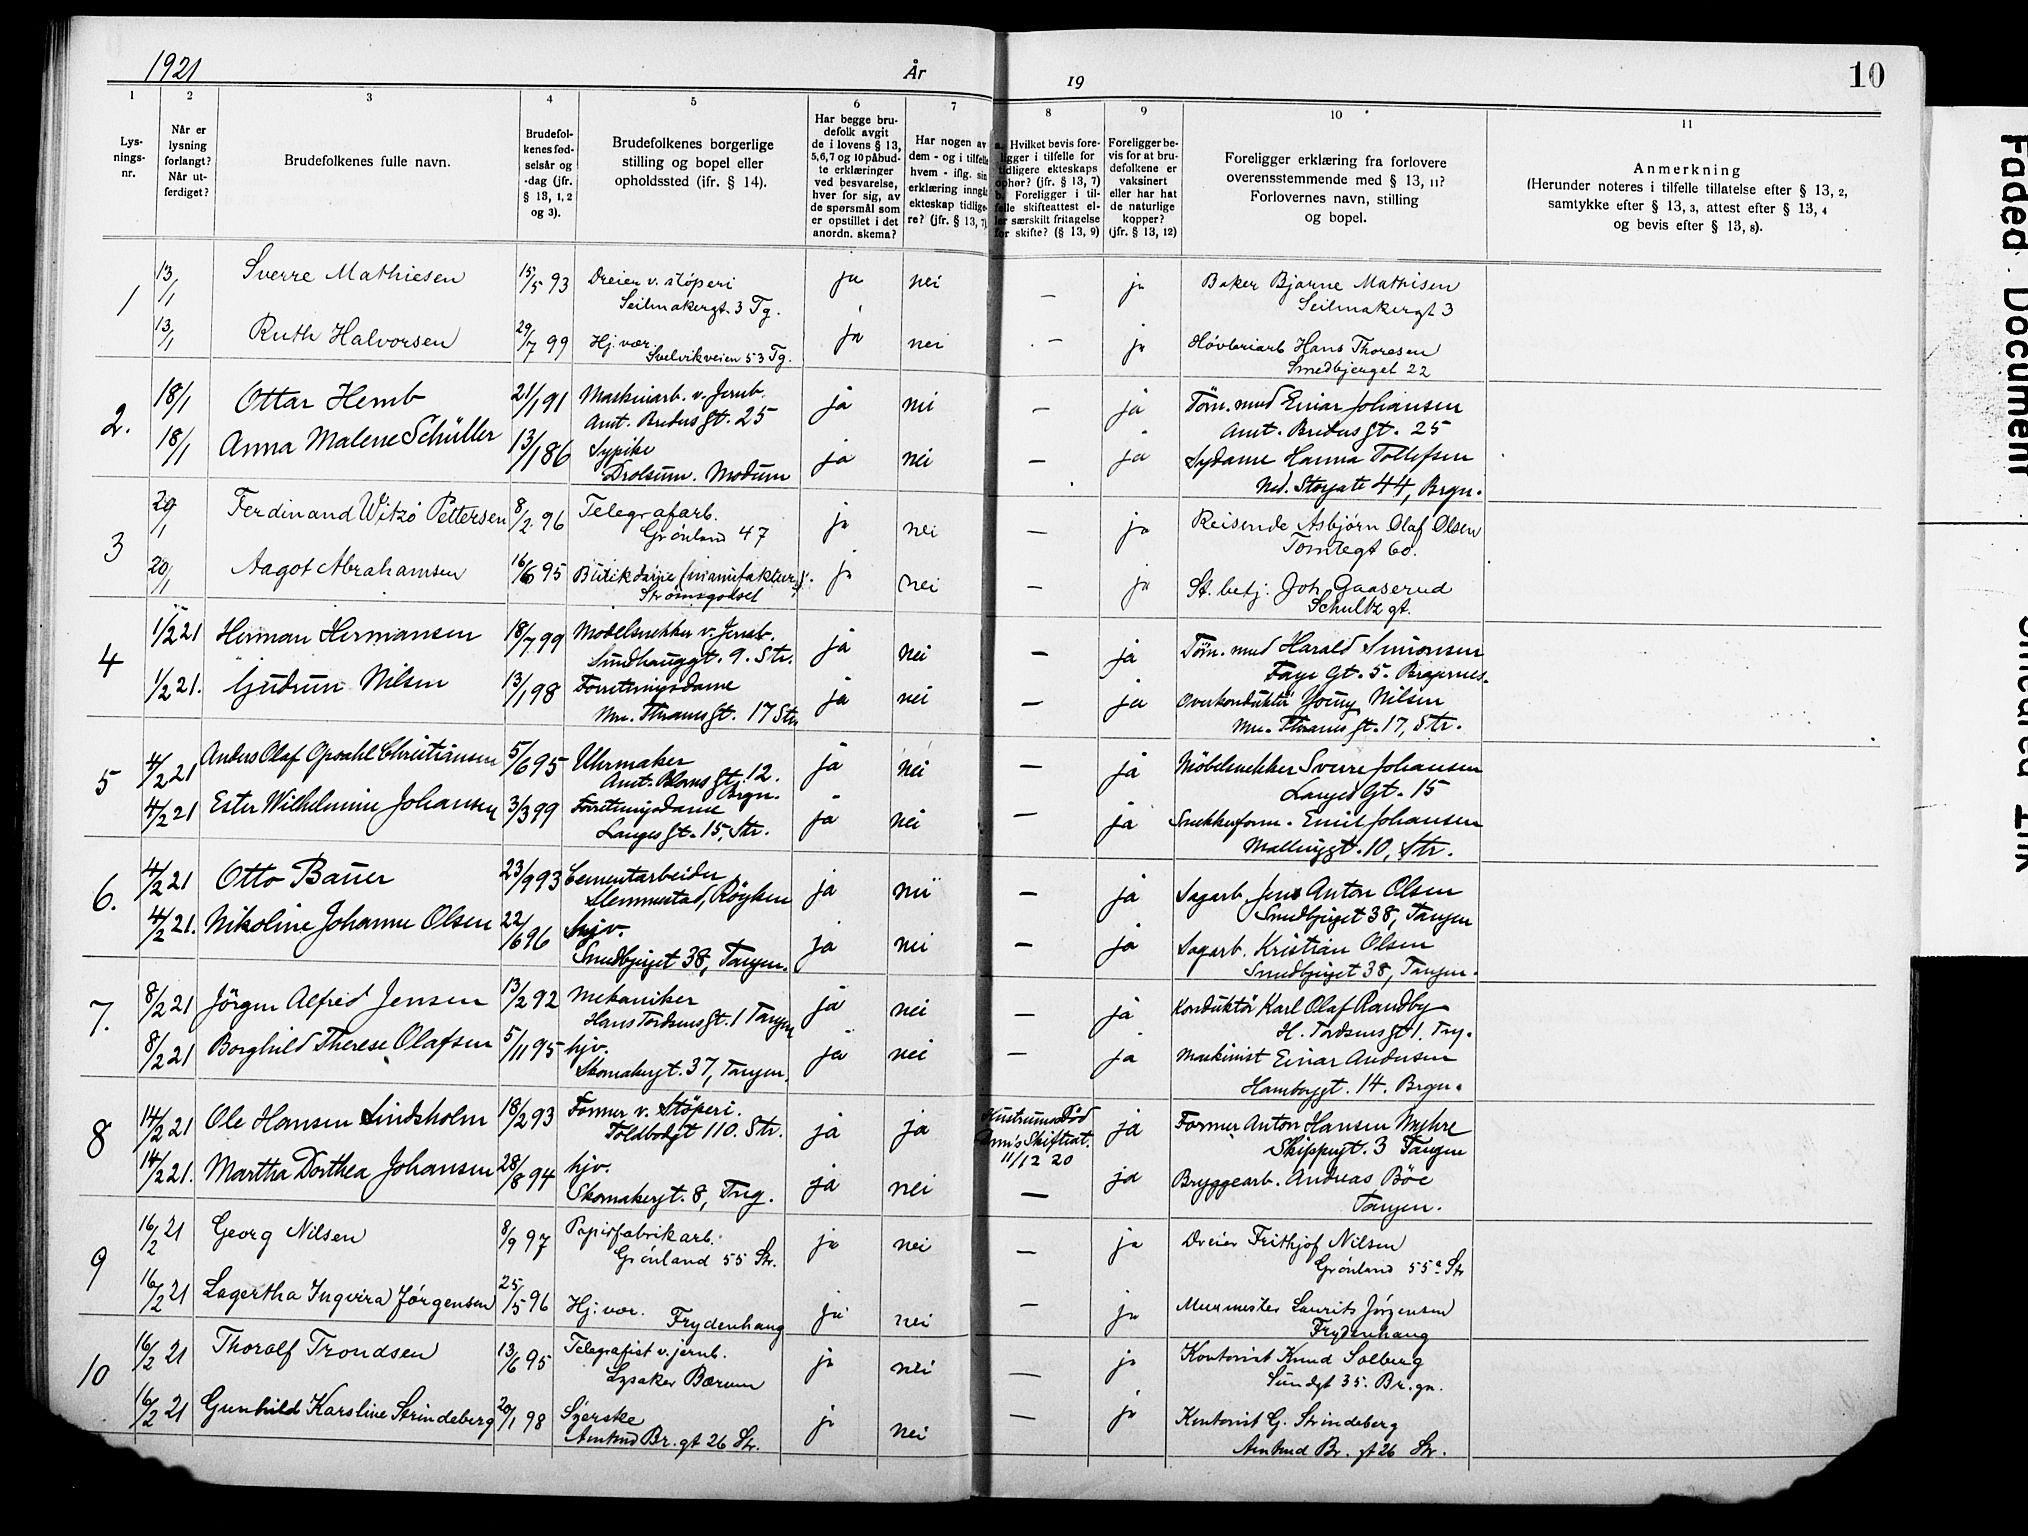 1921 År 19 10
1 2 3 4 5 6 7 8 9 10 11
Lys-
nings-
nr.
Når er
lysning
forlangt?
Når ut-
ferdiget?
Brudefolkenes fulle navn.
Brudefol-
kenes fød-
selsår og
-dag (jfr.
§ 13, 1, 2
og 3).
Brudefolkenes borgerlige
stilling og bopel eller
opholdssted (ifr. § 14).
Har begge bru-
defolk avgit
de i lovens § 13,
5,6,7 og 10 påbud-
te erklæringer
ved besvarelse,
hver for sig, av
de spørsmål som
er opstillet i det
anordn. skema?
Har nogen av
dem - og i tilfelle
hvem - iflg. sin
erklæring inngåt
ekteskap tidlige-
re? (jfr. § 13, 7)
a. Hvilket bevis fore-
ligger i tilfelle for
tidligere ekteskaps
ophør? (jfr. § 13, 7)
b. Foreligger i til-
felle skifteattest el-
ler særskilt fritagelse
for skifte? (§ 13, 9)
Foreligger be-
vis for at bru-
defolkene er
vaksinert
eller har hat
de naturlige
kopper?
(jfr. § 13, 12)
Foreligger erklæring fra forlovere
overensstemmende med § 13, 11?
Forlovernes navn, stilling
og bopel.
Anmerkning
(Herunder noteres i tilfelle tillatelse efter § 13, 2,
samtykke efter § 13, 3, attest efter § 13, 4
og bevis efter § 13, 8).
1 13/1 Sverre Mathiesen 15/5 93 Dreier v. støperi ja nei — ja Baker Bjarne Mathisen
Seilmakergt. 3 Tg. Seilmakergt 3
13/1 Ruth Halvorsen 29/7 99 Hj. vær. ja nei — ja Høvleriarb Hans Thoresen
Svelvikveien 53 Tg. Smedbjerget 22
2. 18/1 Ottar Hemb 21/1 91 Maskinarb. v. Jernb. ja nei — ja Töm. mud Einar Johansen
Amt. Bredes Gt. 25 Amt. Bredes Gt. 25
18/1 Anna Malene Schüller 13/1 86 Sypike ja nei — ja Sydame Hanna Tollefsen
Drolsum. Modum Ned. Storgate 44, Brgn.
3 20/1 Ferdinand Witzø Pettersen 8/2 96 Telegrafarb. ja nei — ja Reisende Asbjørn Olaf Olsen
Grønland 47 Tomtegt 60.
20/1 Aagot Abrahamsen 16/6 95 Butikdame (manufaktur) ja nei — ja St. betj. Joh. Gaaserud
Strømsgodset Schultz gt.
4 1/2 21 Herman Hermansen 18/7 99 Modelsnekker v. Jernb. ja nei — ja Töm. mud Harald Simonsen
Sundhauggt. 9. Str. Faye Gt. 5. Bragernes.
1/2 21. Gudrun Nilsen 13/1 98 Forretningsdame ja nei — ja Overkonduktör Young Nilsen
Mrc. Thranes Gt. 17 Str. Mrc. Thranes Gt. 17, Str.
5 4/2 21 Anders Olaf Opsahl Christiansen 5/6 95 Uhrmaker ja nei — ja Möbelsnekker Sverre Johansen
Amt. Bloms Gt. 12. Brgn. Langes Gt. 15
4/2 21 Ester Wilhelmine Johansen 3/3 99 Forretningsdame ja nei — ja Snekkerform. Emil Johansen
Langes Gt. 15, Str. Mallinggt. 10, Str.
6. 4/2 21 Otto Bauer 23/9 93 Cementarbeider ja nei — ja Sagarb. Jens Anton Olsen
Slemmestad, Röyken Smedbjerget 38, Tangen
4/2 21. Nikoline Johanne Olsen 22/6 96 hjv. ja nei — ja Sagarb. Kristian Olsen
Smedbjerget 38, Tangen. Smedbjerget 38, Tangen.
7. 8/2 21 Jörgen Alfred Jensen 13/2 92 Mekaniker ja nei — ja Konduktör Karl Olaf Randby
Hans Tordsens Gt. 1 Tangen H. Tordsens Gt 1. Tng.
8/2 21 Borghild Therese Olafsen 5/11 95 hjv. ja nei — ja Maskinist Einar Andersen
Skomakergt. 37, Tangen. Hamborggt. 14. Brgn.
8 14/2 21 Ole Hansen Lindsholm 18/2 93 Former v. Stöperi. ja ja Hustruens Död ja Former Anton Hansen Myhre
Toldbodgt 110. Str. Skifteat. Skippergt. 3 Tangen
11/12 20
14/2 21. Martha Dorthea Johansen 28/8 94 hjv. ja nei — ja Bryggearb. Andreas Böe
Skomakergt. 8, Tng. Tangen.
9 16/2 21 Georg Nilsen 8/9 97 Papirfabrikarb. ja nei — ja Dreier Frithjof Nilsen
Grönland 55 Str. Grönland 55a Str
16/2 21 Lagertha Ingvira Jörgensen 25/5 96 Hj. vær. ja nei — ja Murmester Laurits Jörgensen
Frydenhaug Frydenhaug
10 16/2 21 Thoralf Trondsen 13/6 95 Telegrafist v. jernb. ja nei — ja Kontorist Knud Solberg
Lysaker Bærum Sundgt 35. Br.gn.
16/2 21 Gunhild Karoline Strindeberg 20/1 98 Syerske ja nei — ja Kontorist G. Strindeberg
Amtmd Br. gt 26 Str. Amtmd Br. gt 26 Str.
Faded Document
Smeared Ink